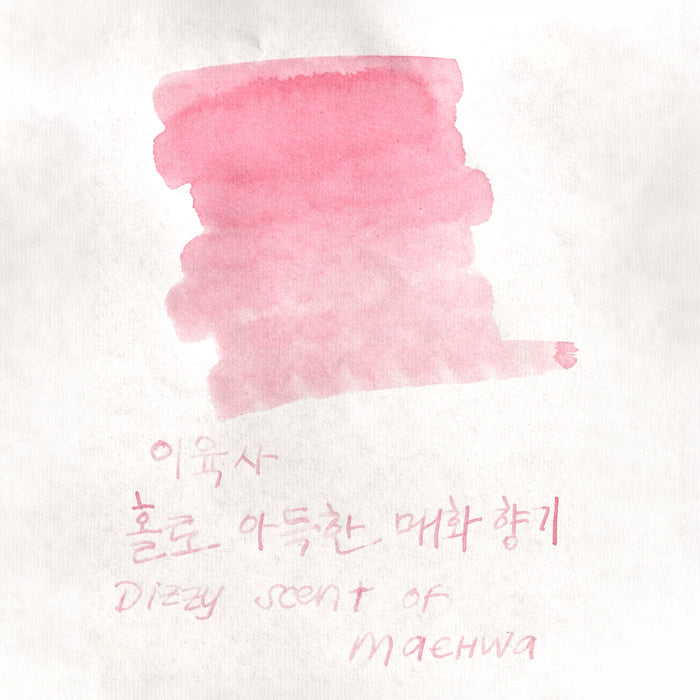 이육사
홀로 아득한 매화 향기
Dizzy scent of
maehwa